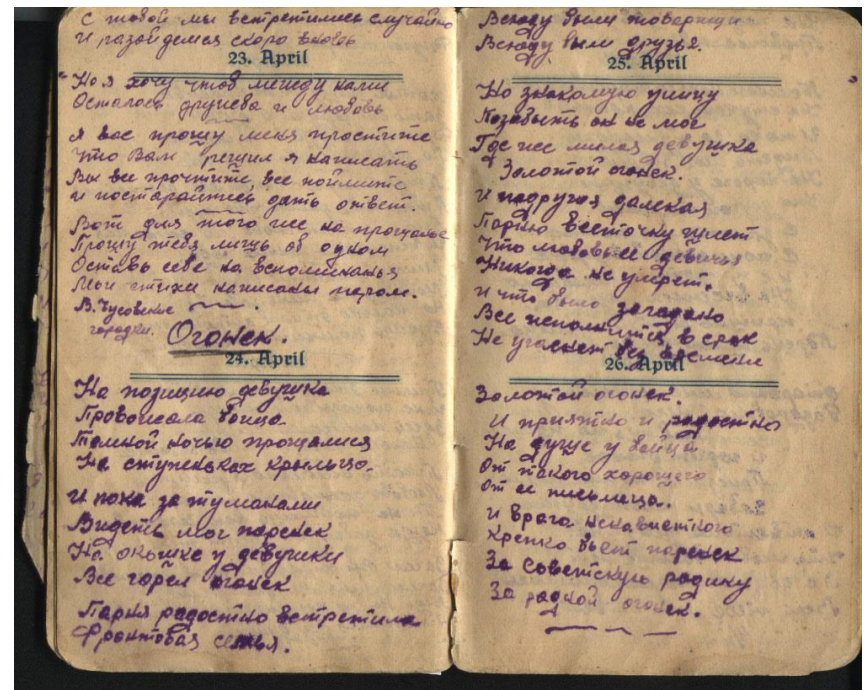 С тобой мы встретились случайно
И разойдемся скоро вновь
23. April
Но я хочу чтоб между нами
Осталось дружба и любовь
Я вас прошу меня простите
Что Вам решил я написать
Вы все прочтите, все поймите
и постарайтесь дать ответ.
Вот для того же на прощанье
Прошу тебя лишь об одном
Оставь себе на вспоминанья
Мои стихи написаны пером.
В. Чусовские
городки.
Огонек.
24. April
На позицию девушка
Провожала бойца
Темной ночью прощалися
На ступеньках крыльца.
И пока за туманами
Видеть мог паренек
На окошке у девушки
Все горел огонек
Парня радостно встретила
Фронтовая семья.
Всюду были товарищи
Всюду были друзья.
25. April
Но знакомую улицу
Позабыть он не мог
Где же милая девушка
Золотой огонек.
И подруга далекая
Парню весточку шлет
Что любовь ее девичья
Никогда не умрет.
И что было загадано
Все исполнится в срок
Не угаснет без времени
26. April
Золотой огонек.
И приятно и радостно
На душе у бойца
От такого хорошего
От ее письмеца.
И врага ненавистного
Крепко бьет паренек
За Советскую родину
За родной огонек.